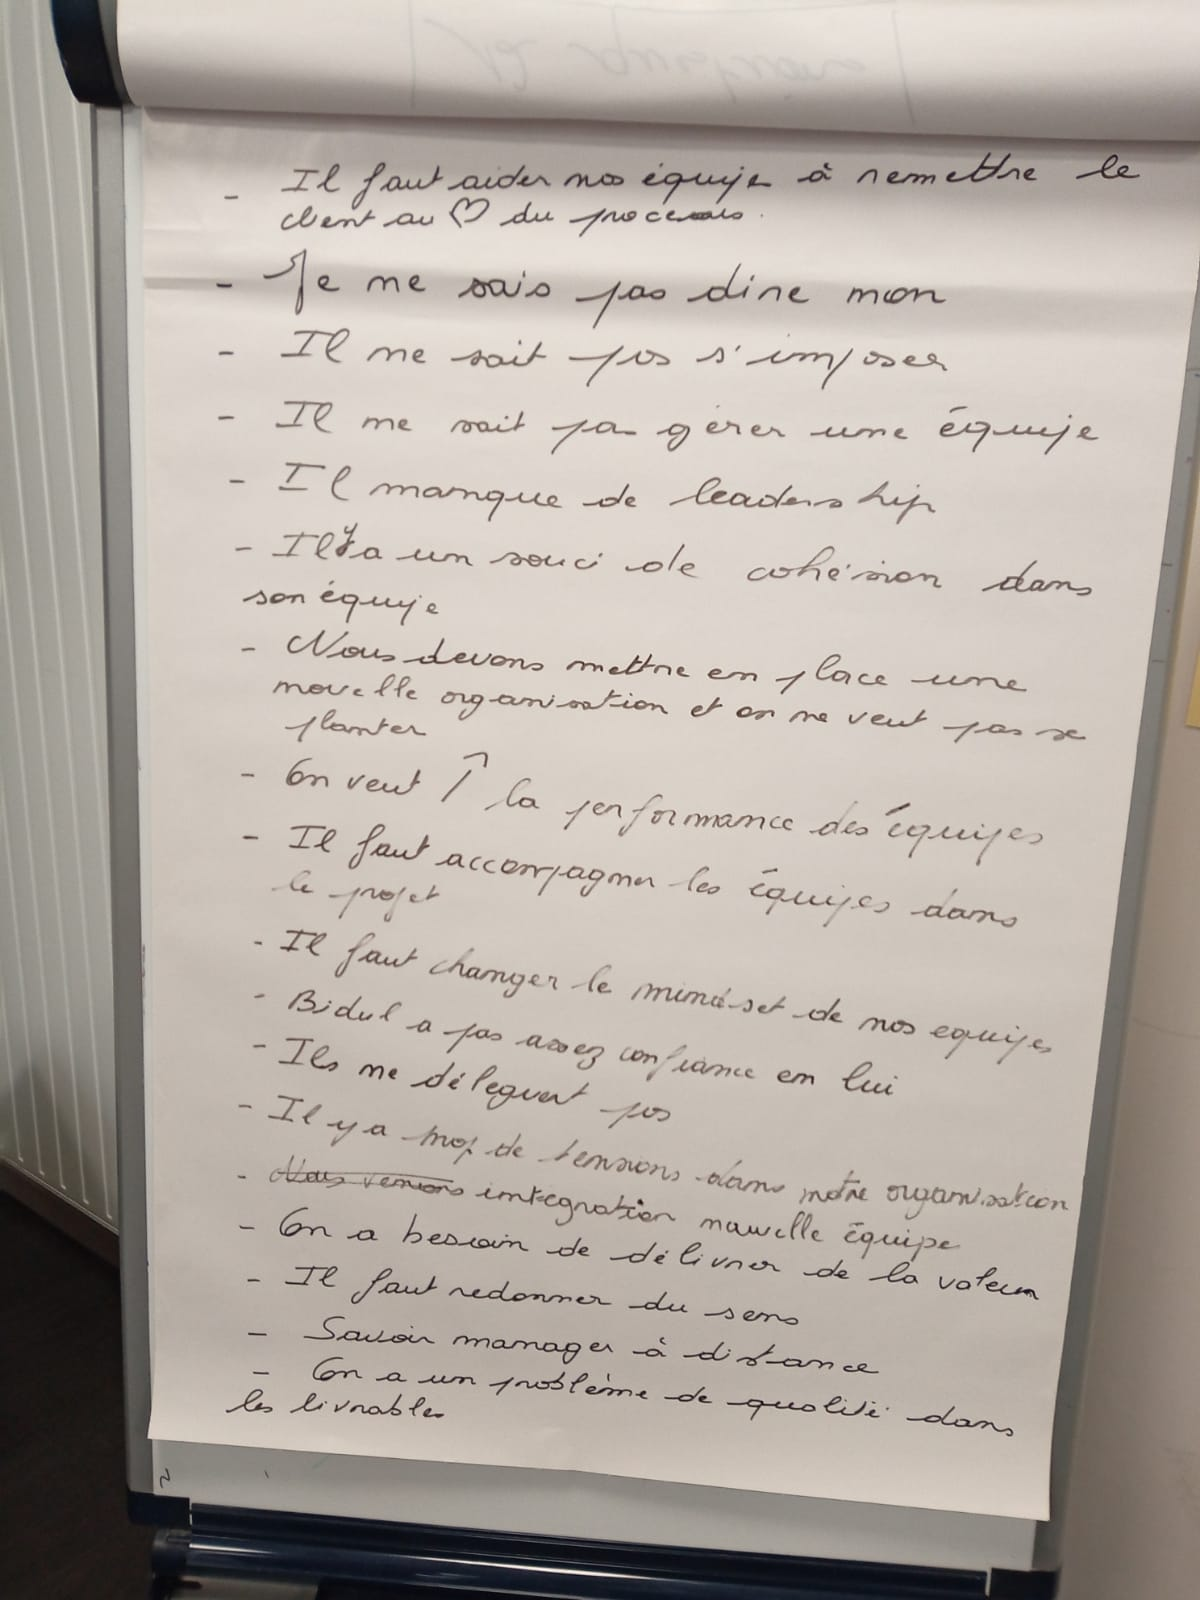 - Il faut aider nos équipe à remettre le
client au ♡ du processus.
- Je ne sais pas dire non
- Il ne sait pas s'imposer
- Il ne sait pas gérer une équipe
- Il manque de leadership
- Il y a un souci de cohésion dans
son équipe
- Nous devons mettre en place une
nouvelle organisation et on ne veut pas se
planter
- On veut ↑ la performance des équipes
- Il faut accompagner les équipes dans
le projet
- Il faut changer le mind-set de nos equipes
- Bidul a pas assez confiance en lui
- Ils ne délèguent pas
- Il y a trop de tensions dans notre organisation
- Nous venons intégration nouvelle équipe
- On a besoin de délivrer de la valeur
- Il faut redonner du sens
- Savoir manager à distance
- On a un problème de qualité dans
les livrables